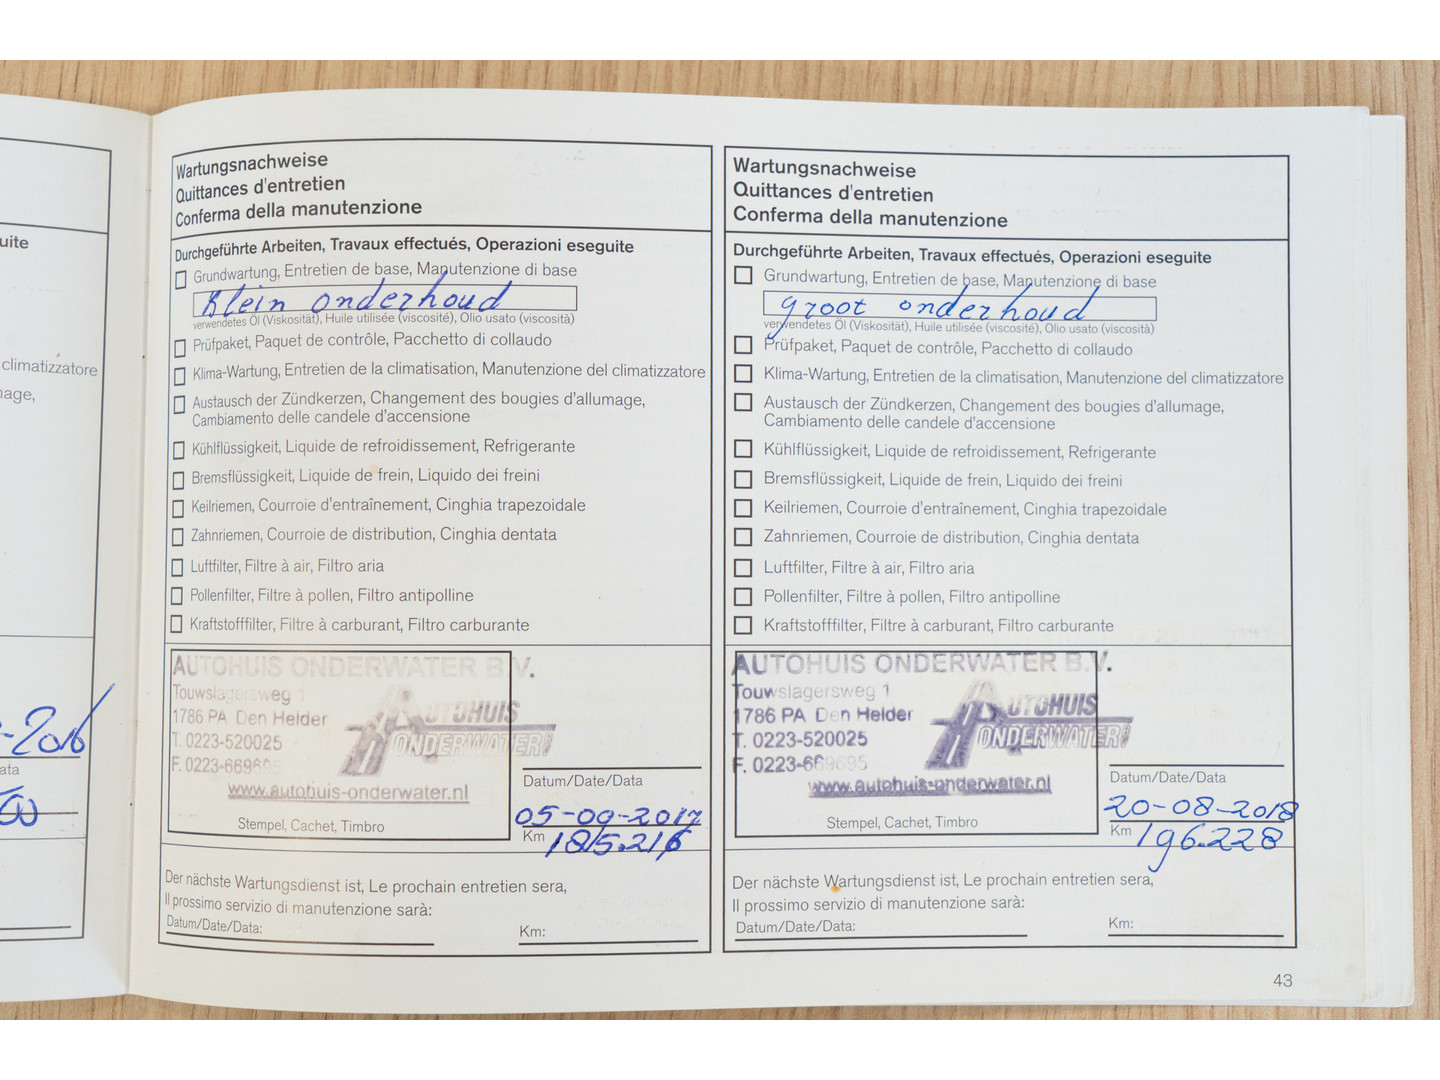 uite
climatizzatore
nage,
-2016
ata
Wartungsnachweise
Quittances d'entretien
Conferma della manutenzione
Durchgeführte Arbeiten, Travaux effectués, Operazioni eseguite
Grundwartung, Entretien de base, Manutenzione di base
Klein onderhoud
verwendetes Öl (Viskosität), Huile utilisée (viscosité), Olio usato (viscosità)
Prüfpaket, Paquet de contrôle, Pacchetto di collaudo
Klima-Wartung, Entretien de la climatisation, Manutenzione del climatizzatore
Austausch der Zündkerzen, Changement des bougies d'allumage,
Cambiamento delle candele d'accensione
Kühlflüssigkeit, Liquide de refroidissement, Refrigerante
Bremsflüssigkeit, Liquide de frein, Liquido dei freini
Keilriemen, Courroie d'entraînement, Cinghia trapezoidale
Zahnriemen, Courroie de distribution, Cinghia dentata
Luftfilter, Filtre à air, Filtro aria
Pollenfilter, Filtre à pollen, Filtro antipolline
Kraftstofffilter, Filtre à carburant, Filtro carburante
AUTOHUIS ONDERWATER B.V.
Touwslagersweg 1
1786 PA Den Helder
T. 0223-520025
F. 0223-669695
AUTOHUIS
ONDERWATER
www.autohuis-onderwater.nl
Stempel, Cachet, Timbro
Datum/Date/Data
05-09-2017
Km 185.216
Der nächste Wartungsdienst ist, Le prochain entretien sera,
Il prossimo servizio di manutenzione sarà:
Datum/Date/Data:
Km:
Wartungsnachweise
Quittances d'entretien
Conferma della manutenzione
Durchgeführte Arbeiten, Travaux effectués, Operazioni eseguite
Grundwartung, Entretien de base, Manutenzione di base
groot onderhoud
verwendetes Öl (Viskosität), Huile utilisée (viscosité), Olio usato (viscosità)
Prüfpaket, Paquet de contrôle, Pacchetto di collaudo
Klima-Wartung, Entretien de la climatisation, Manutenzione del climatizzatore
Austausch der Zündkerzen, Changement des bougies d'allumage,
Cambiamento delle candele d'accensione
Kühlflüssigkeit, Liquide de refroidissement, Refrigerante
Bremsflüssigkeit, Liquide de frein, Liquido dei freini
Keilriemen, Courroie d'entraînement, Cinghia trapezoidale
Zahnriemen, Courroie de distribution, Cinghia dentata
Luftfilter, Filtre à air, Filtro aria
Pollenfilter, Filtre à pollen, Filtro antipolline
Kraftstofffilter, Filtre à carburant, Filtro carburante
AUTOHUIS ONDERWATER B.V.
Touwslagersweg 1
1786 PA Den Helder
T. 0223-520025
F. 0223-669695
AUTOHUIS
ONDERWATER
www.autohuis-onderwater.nl
Stempel, Cachet, Timbro
Datum/Date/Data
20-08-2018
Km 196.228
Der nächste Wartungsdienst ist, Le prochain entretien sera,
Il prossimo servizio di manutenzione sarà:
Datum/Date/Data:
Km:
43